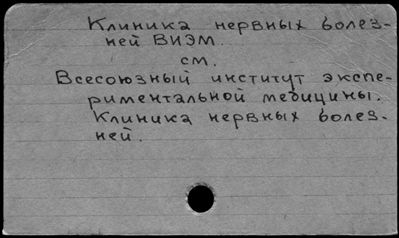 Клиника нервных болез-
ней ВИЭМ.
см.
Всесоюзный институт экспе-
риментальной медицины.
Клиника нервных болез-
ней.